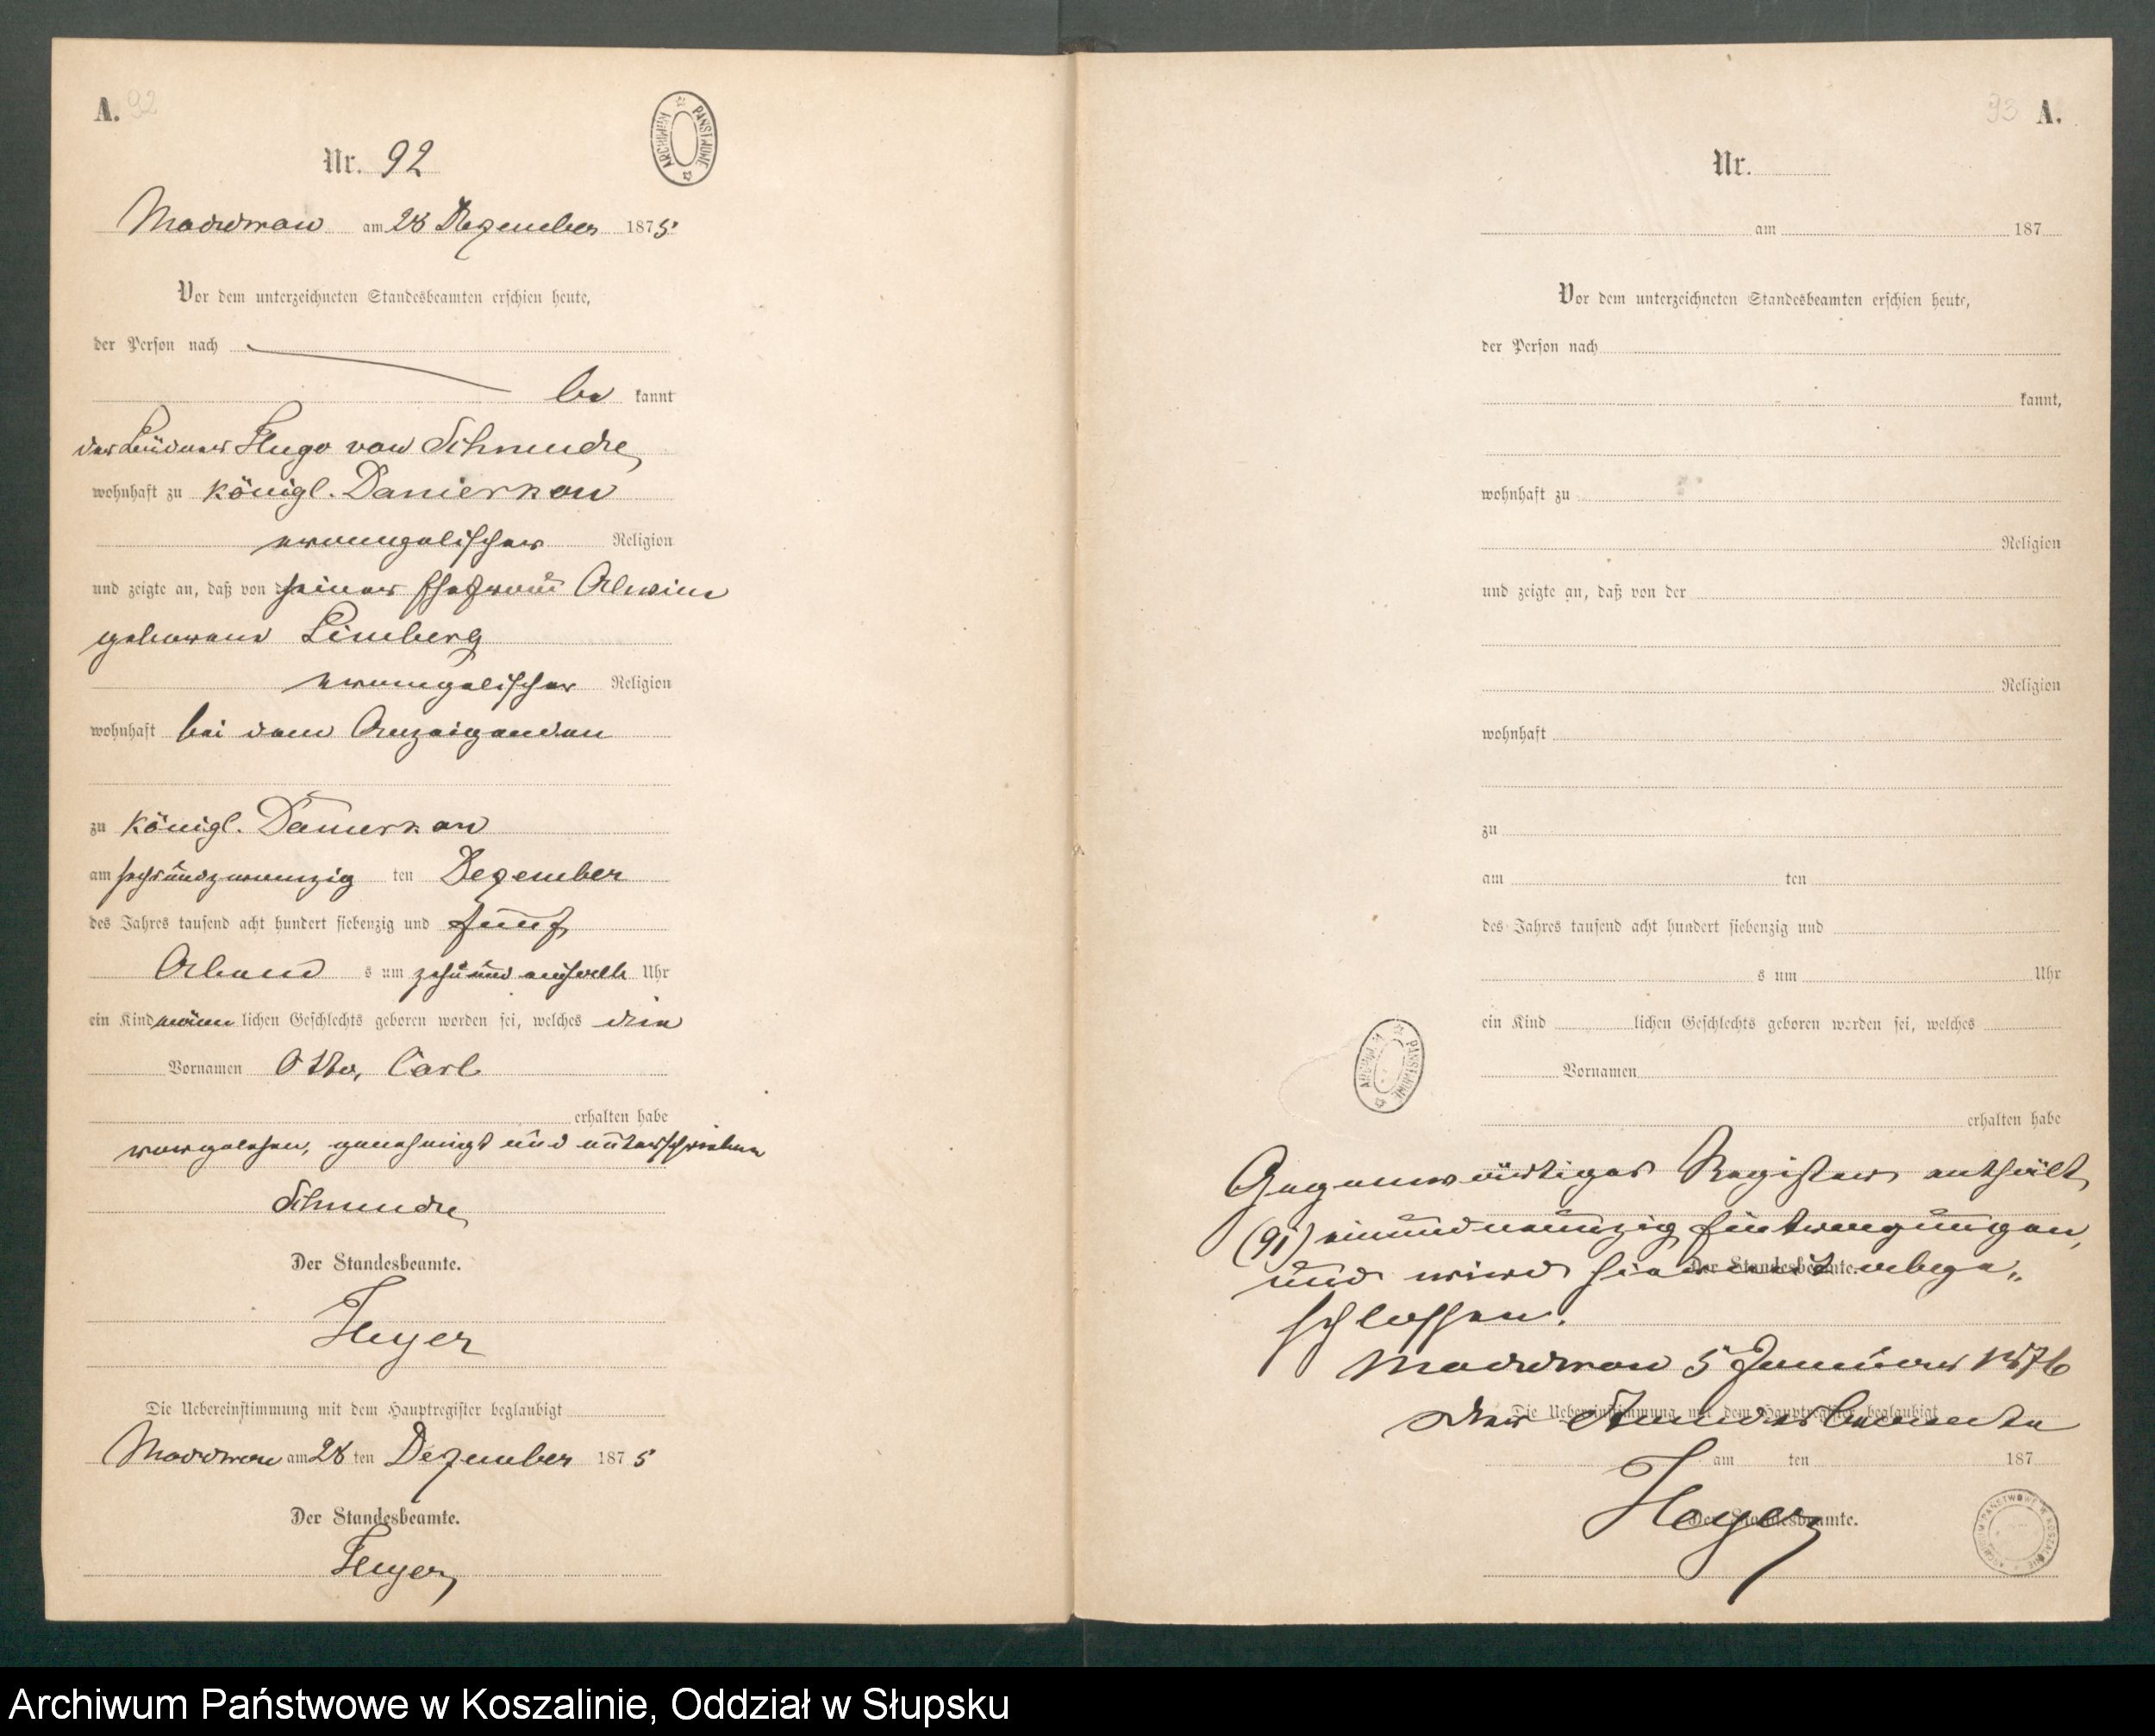 A. 92
ARCHIWUM PAŃSTWOWE
Nr. 92
Modderow am 28 Dezember 1875
Vor dem unterzeichneten Standesbeamten erschien heute,
der Person nach
be kannt
der Büdner Hugo von Schmude
wohnhaft zu Königl. Damerkow
evangelischer Religion
und zeigte an, daß von der seiner Ehefrau Alwine
geborene Limberg
evangelischer Religion
wohnhaft bei dem Anzeigenden
zu Königl. Damerkow
am sechsundzwanzig ten Dezember
des Jahres tausend acht hundert siebenzig und fünf
Abend s um zehn und einhalb Uhr
ein Kind männ lichen Geschlechts geboren worden sei, welches die
Vornamen Otto, Carl
erhalten habe
vorgelesen, genehmigt und unterschrieben
Schmude
Der Standesbeamte.
Heyer
Die Uebereinstimmung mit dem Hauptregister beglaubigt
am 28 ten Dezember 1875
Der Standesbeamte.
Heyer
93 A.
Nr.
am 187
Vor dem unterzeichneten Standesbeamten erschien heute,
der Person nach
kannt,
wohnhaft zu
Religion
und zeigte an, daß von der
Religion
wohnhaft
zu
am ten
des Jahres tausend acht hundert siebenzig und
s um Uhr
ein Kind lichen Geschlechts geboren worden sei, welches
Vornamen
ARCHIWUM PAŃSTWOWE
erhalten habe
Gegenwärtiges Register enthält
(91) einundneunzig Eintragungen,
und wird hiermit abge„
Der Standesbeamte.
schlossen.
5 Januar 1876
Der Standesbeamte
Die Uebereinstimmung mit dem Hauptregister beglaubigt
am ten 187
Heyer
Der Standesbeamte.
ARCHIWUM PAŃSTWOWE W KOSZALINIE
Archiwum Państwowe w Koszalinie, Oddział w Słupsku